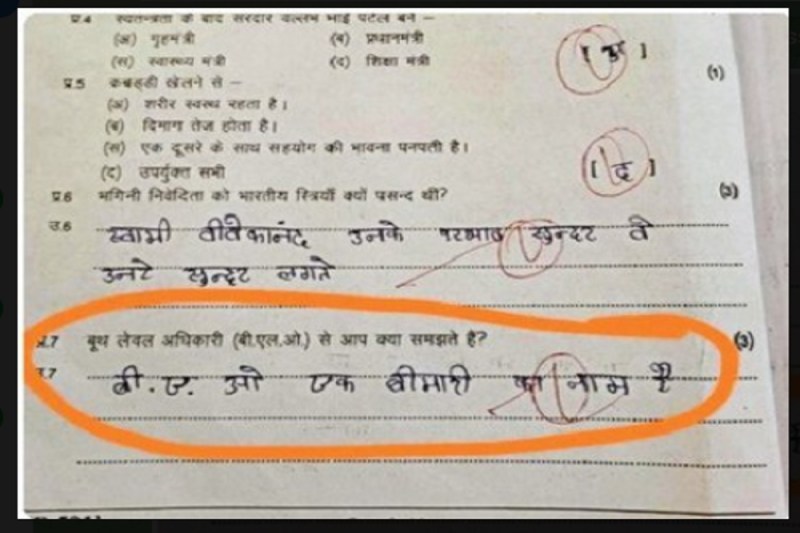 प्र.4 स्वतन्त्रता के बाद सरदार वल्लभ भाई पटेल बने –
(अ) गृहमंत्री (ब) प्रधानमंत्री
(स) स्वास्थ्य मंत्री (द) शिक्षा मंत्री [ अ ]
(1)
प्र.5 कबड्डी खेलने से –
(अ) शरीर स्वस्थ रहता है।
(ब) दिमाग तेज होता है।
(स) एक दूसरे के साथ सहयोग की भावना पनपती है।
(द) उपर्युक्त सभी [ द ]
प्र.6 भगिनी निवेदिता को भारतीय स्त्रियाँ क्यों पसन्द थीं? (3)
उ.6 स्वामी वीवेकानंद उनके सुन्दर वे
उनटे सुन्दर लगते
प्र.7 बूथ लेवल अधिकारी (बी.एल.ओ.) से आप क्या समझते है? (3)
उ.7 बी.ए. ओ एक बीमारी का नाम है